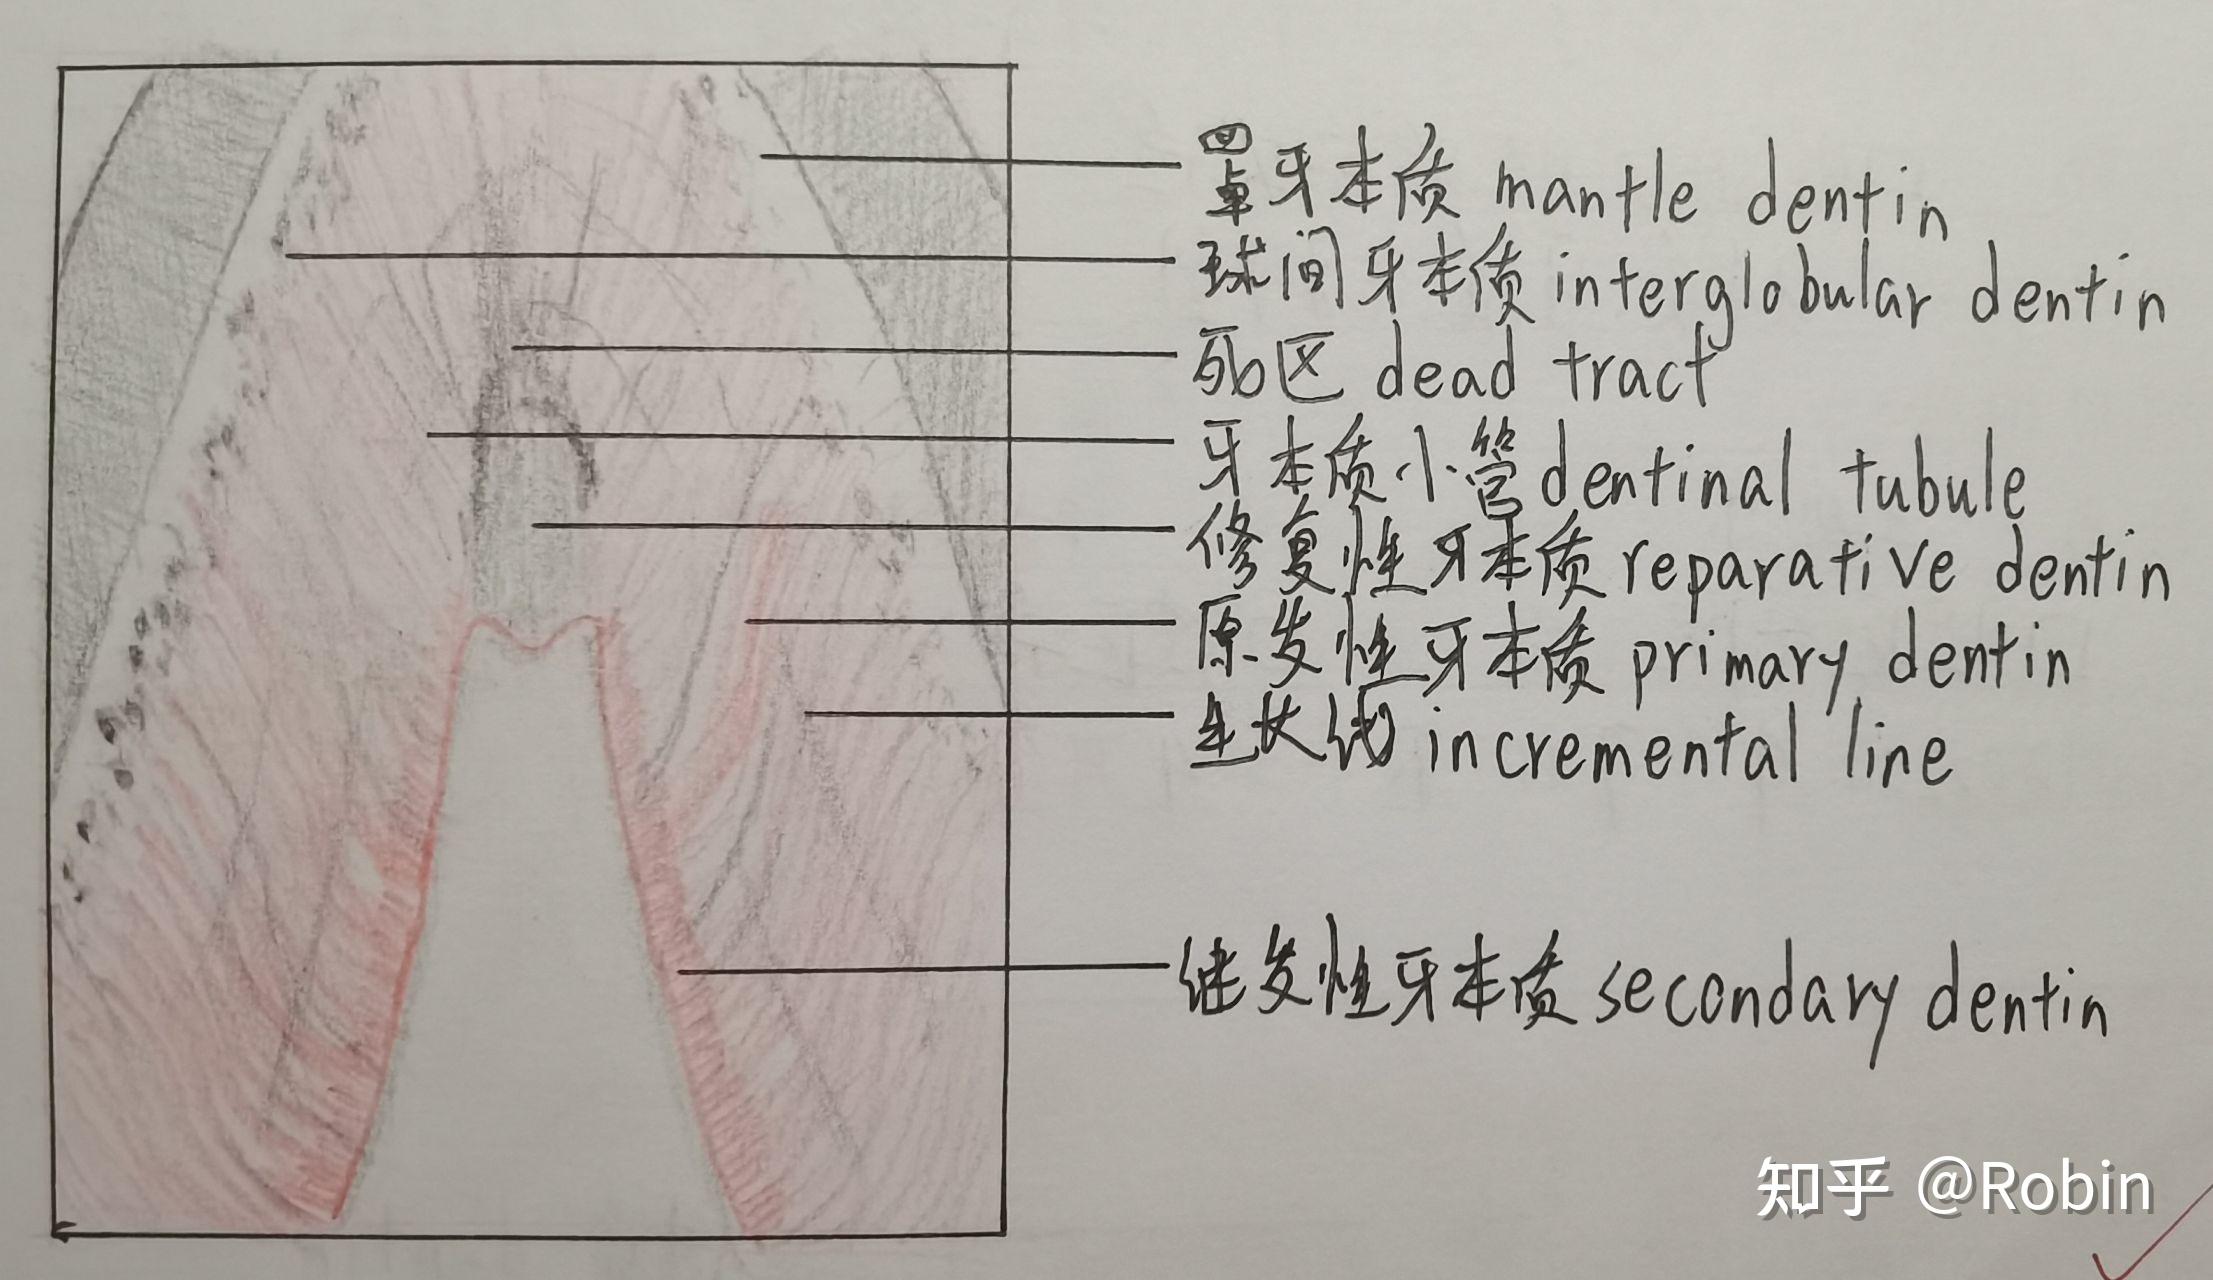 罩牙本质 mantle dentin
球间牙本质 interglobular dentin
死区 dead tract
牙本质小管 dentinal tubule
修复性牙本质 reparative dentin
原发性牙本质 primary dentin
生长线 incremental line
继发性牙本质 secondary dentin
知乎 @Robin